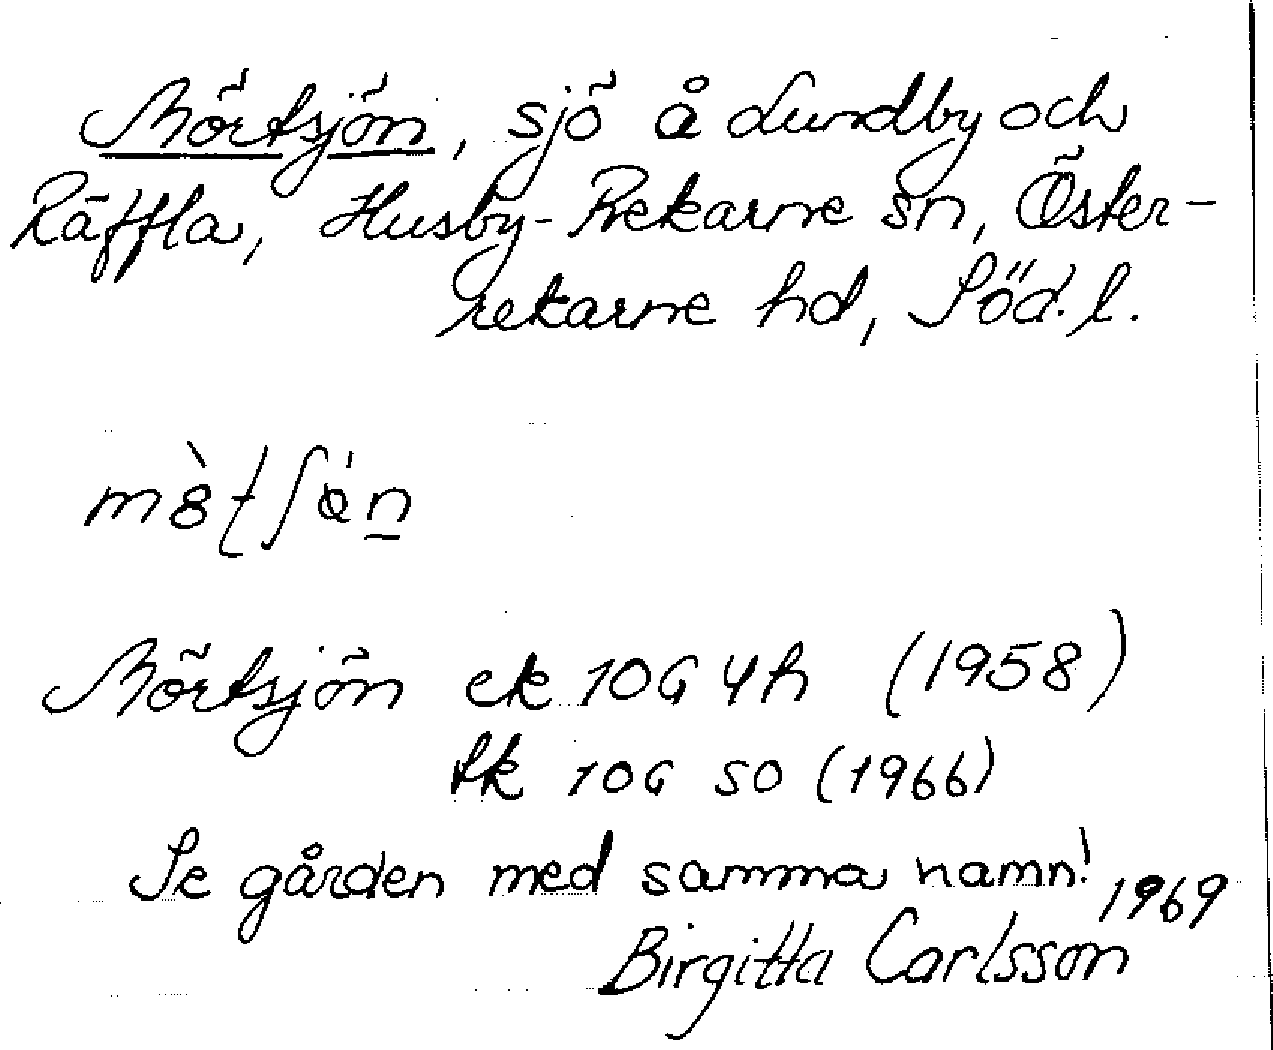 Mörtsjön, sjö å Lundby och
Räffla, Husby-Rekarne sn, Öster-
rekarne hd, Söd. l.
Mörtsjön ek 10G 4h (1958)
tk 10G SO (1966)
Se gården med samma namn! 1969
Birgitta Carlsson